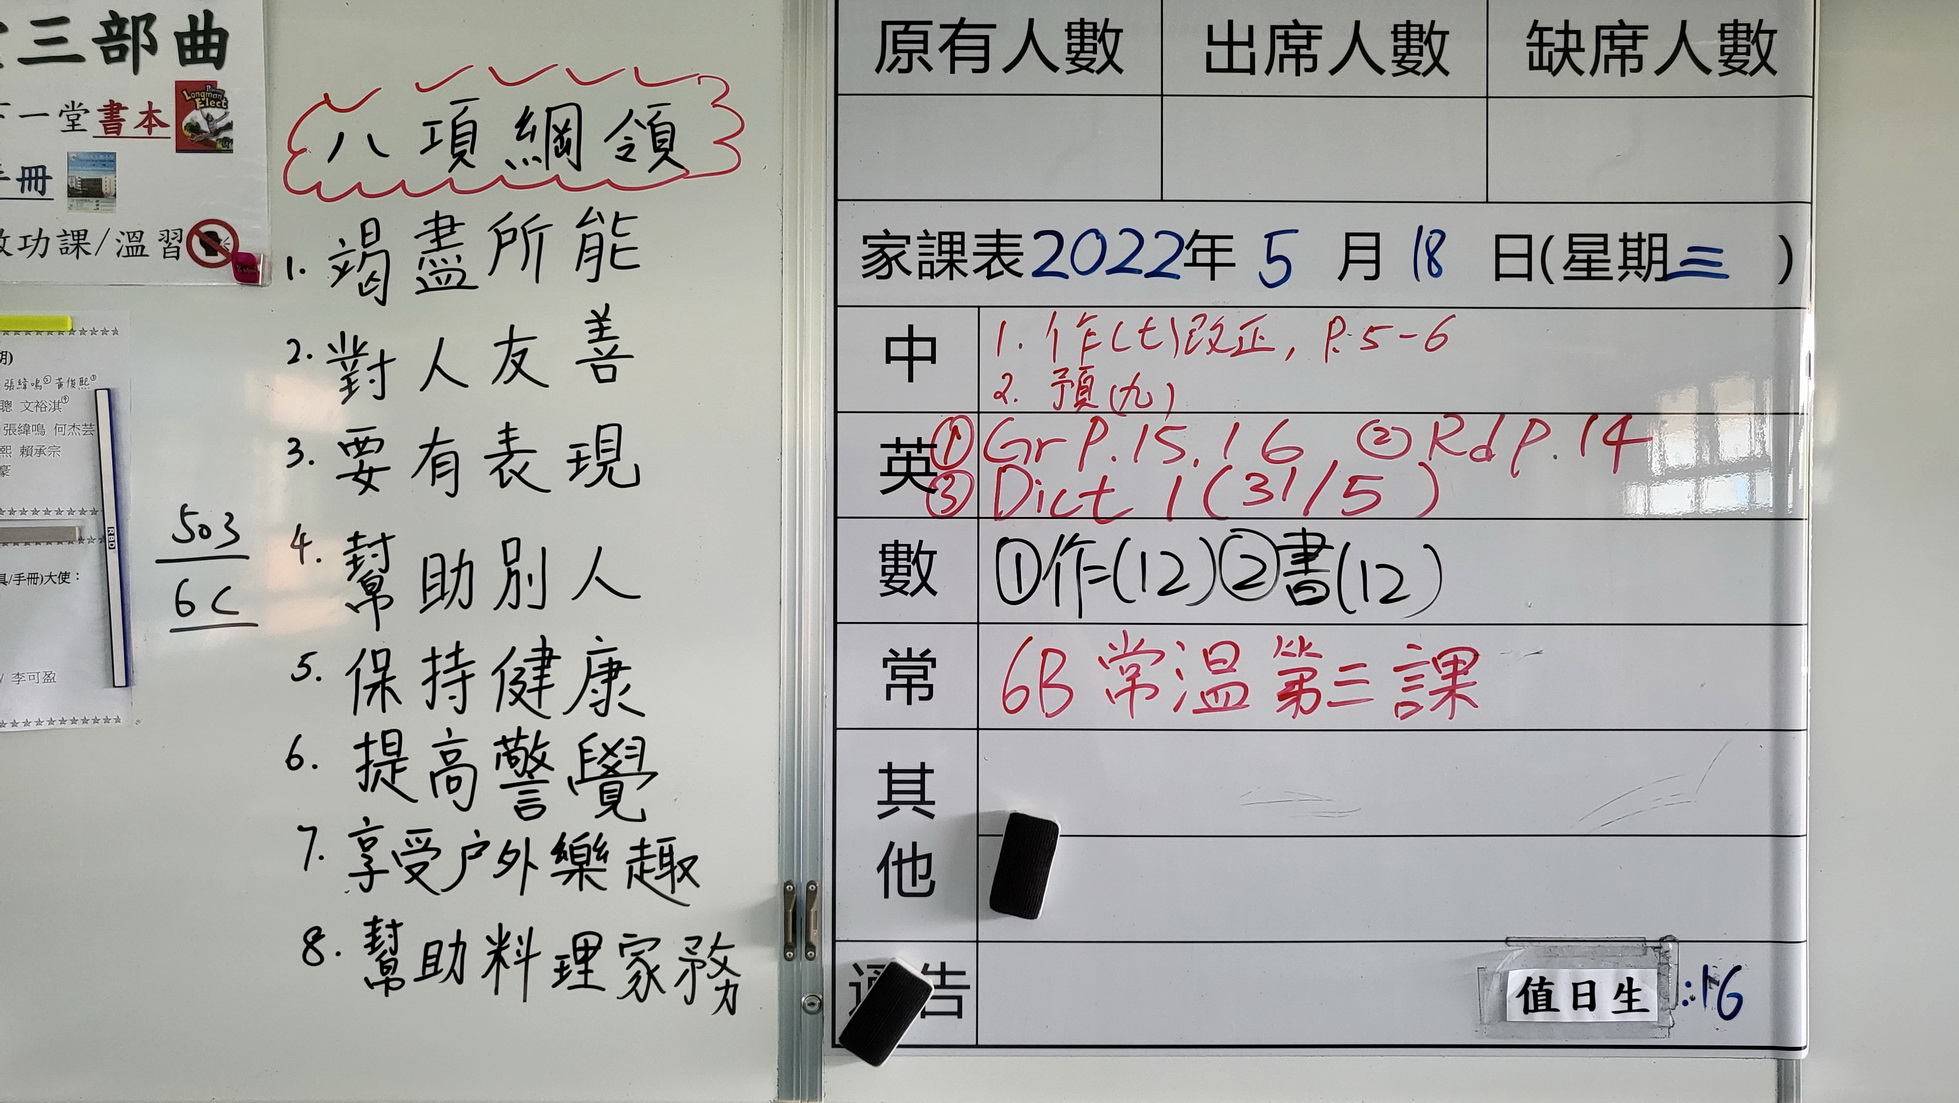 三部曲
一堂書本
Longman Elect
手冊
功課/溫習
張緯鳴② 黃俊熙①
聰 文裕淇④
張緯鳴 何杰芸
熙 賴承宗
豪
具/手冊)大使：
/ 李可盈
503
6C
八項綱領
1. 竭盡所能
2. 對人友善
3. 要有表現
4. 幫助別人
5. 保持健康
6. 提高警覺
7. 享受户外樂趣
8. 幫助料理家務
原有人數 出席人數 缺席人數
家課表2022年 5 月 18 日(星期三 )
中
1. 作(七)改正, P.5-6
2. 預(九)
英
① Gr P.15, 16 ② Rd P.14
③ Dict 1 (31/5)
數 ①作(12)②書(12)
常 6B 常溫第三課
其他
通告
值日生:16